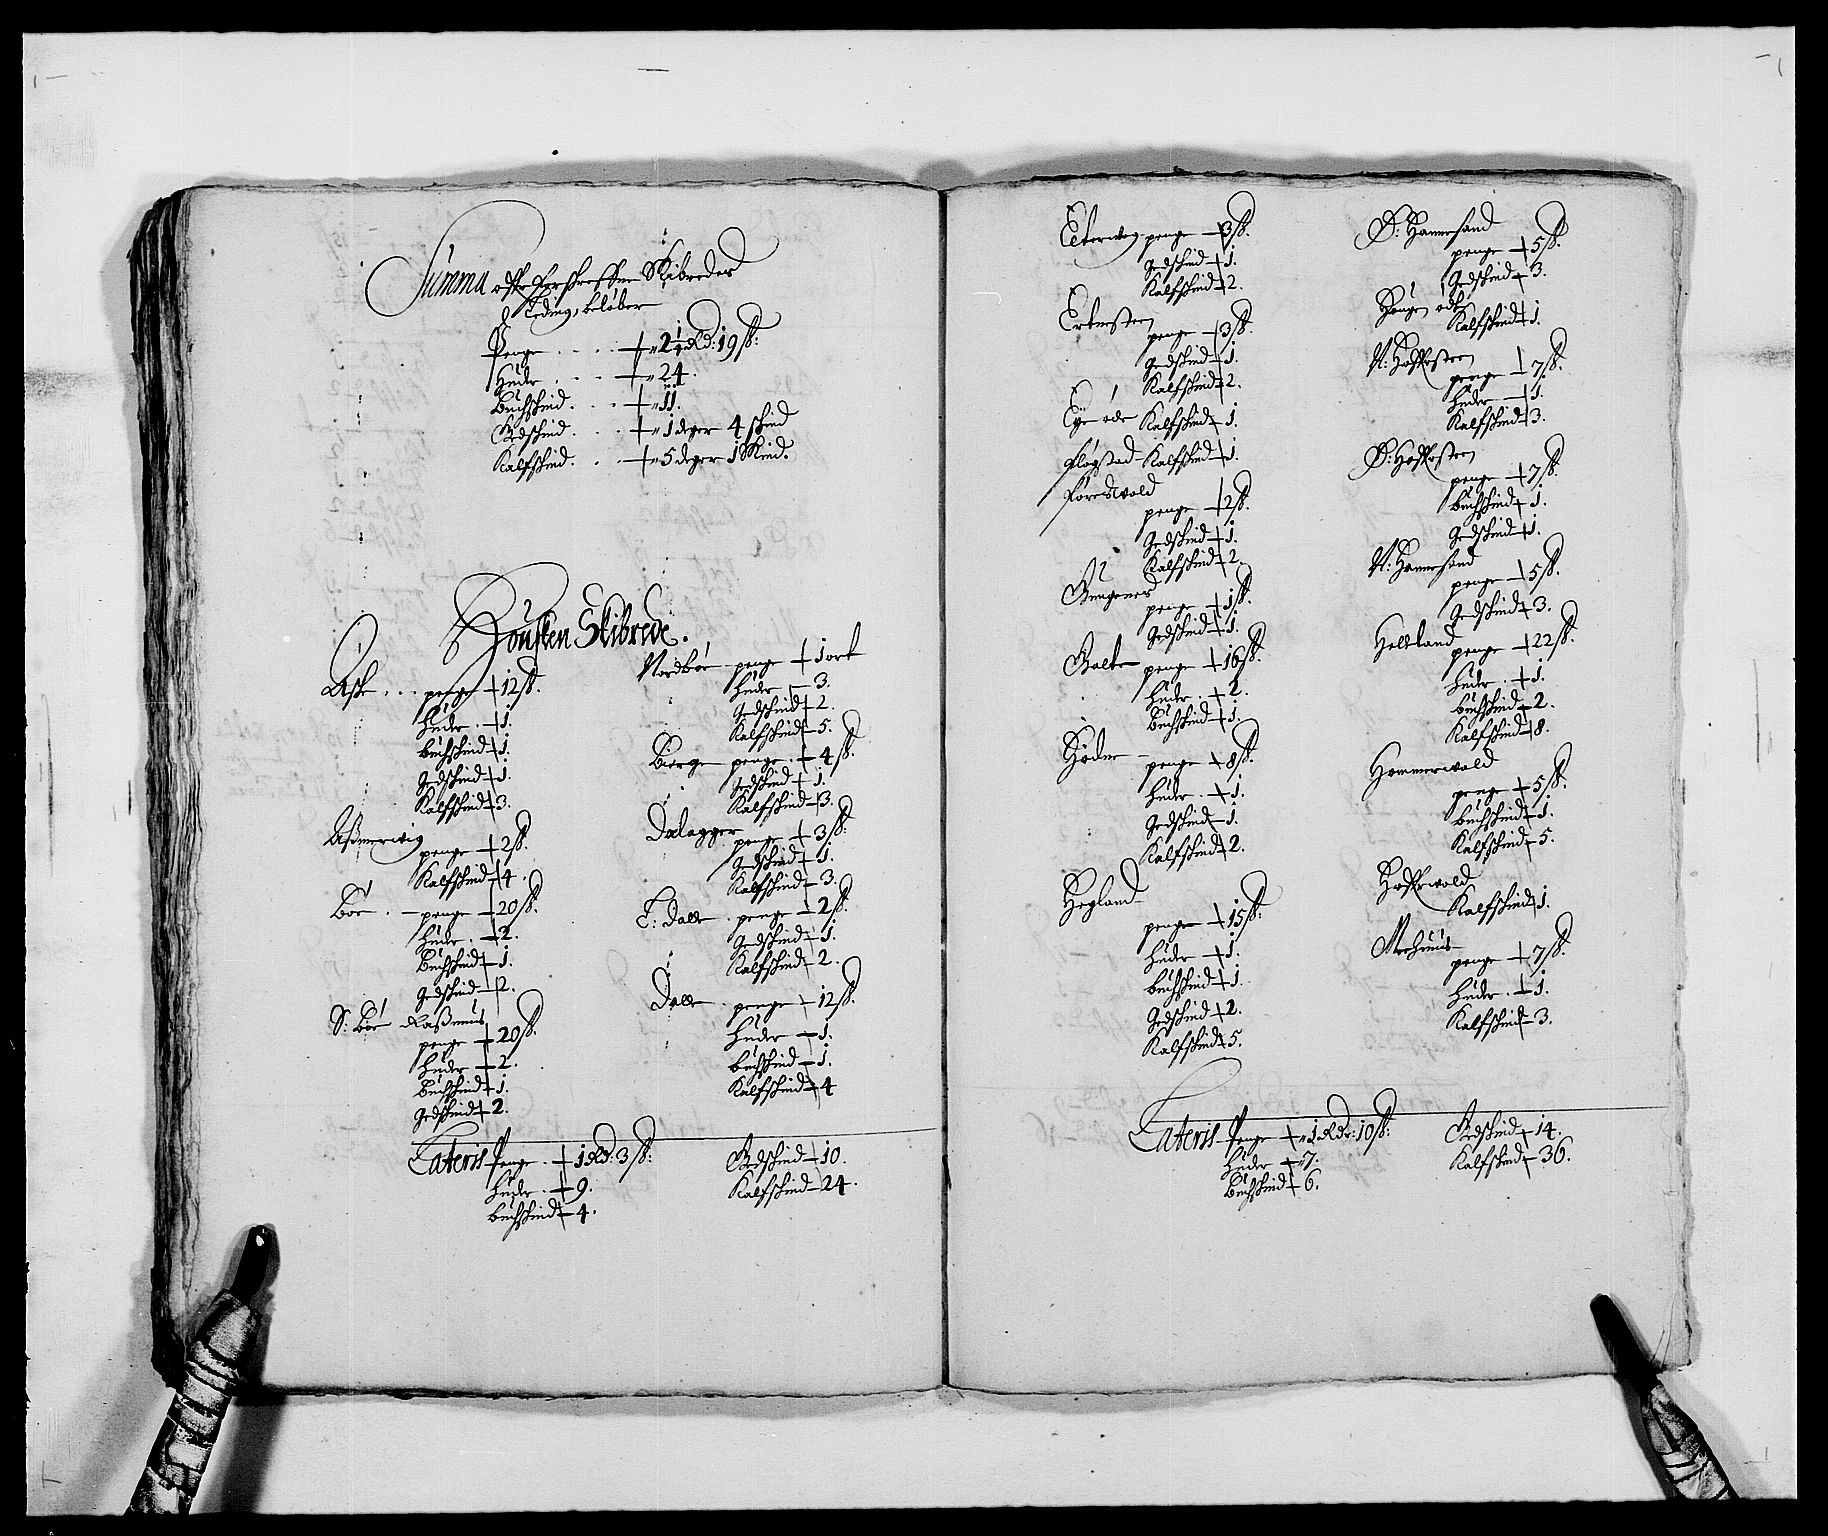 Summa Skibreder
Teding, beløber
Penge . . . . — 2¼ Rd: 19 ß:
Huder . . . — 24.
Buchskind . . . — 11.
Gedskind . . . — 1 deger 4 skind
Kalfskind . . — 5 deger 1 Skind.
Housken Skibrede.
Ask . . . penge — 12 ß.
Huder . — 1.
Buchskind — 1.
Gedskind — 1.
Kalfskind — 3.
Aßmerwig
penge — 2 ß.
Kalfskind — 4.
Bøe . — penge — 20 ß.
Huder . — 2.
Buchskind — 1.
Gedskind — 2.
S: Bøe Raßmus
penge — 20 ß.
Huder — 2.
Buchskind — 1.
Gedskind — 2.
Nordbøe penge — 1 ort
Huder — 3.
Gedskind — 2.
Kalfskind — 5.
Bierge penge . — 4 ß.
Gedskind — 1.
Kalfskind — 3.
Dalagger
penge — 3 ß:
Gedskind — 1.
Kalfskind — 3.
E: Dalle . penge — 2 ß.
Gedskind — 1.
Kalfskind — 2.
Dalle . penge — 12 ß.
Huder — 1.
Buchskind — 1.
Kalfskind — 4
Lateris Penge . — 1 Rd: 3 ß:
Huder . — 9.
Buchskind — 4.
Gedskind — 10.
Kalfskind — 24.
Eiterweg penge — 3 ß.
Gedskind — 1.
Kalfskind — 2.
Erkensteen
penge — 3 ß.
Gedskind — 1.
Kalfskind — 2.
Eye øde Kalfskind — 1.
Fløgstad Kalfskind — 1.
Føreswold
penge — 2 ß.
Gedskind — 1.
Kalfskind — 2.
penge — 1 ß.
Gedskind — 1.
penge — 16 ß.
Huder . — 2.
Buchskind — 1.
penge — 8 ß.
Huder . — 1.
Gedskind — 1.
Kalfskind — 2.
Hegland
penge — 15 ß:
Huder — 1.
Buchskind — 1.
Gedskind — 2.
Kalfskind — 5.
Ø: Hanersand
penge — 5 ß.
Gedskind — 3.
Høugen øde
Kalfskind — 1.
N:
penge — 7 ß.
Huder — 1.
Kalfskind — 3.
Ø:
penge — 7 ß.
Buchskind — 1.
Gedskind — 1.
N: Hanersand
penge — 5 ß.
Gedskind — 3.
Helland
penge — 22 ß.
Huder . — 1.
Buchskind — 2.
Kalfskind — 8.
Hommerwold
penge — 5 ß.
Buchskind — 1.
Kalfskind — 5.
Kalfskind — 1.
penge — 7 ß.
Huder . — 1.
Kalfskind — 3.
Lateris Penge — 1 Rdr: 10 ß:
Huder — 7.
Buchskind — 6.
Gedskind — 14.
Kalfskind — 36.